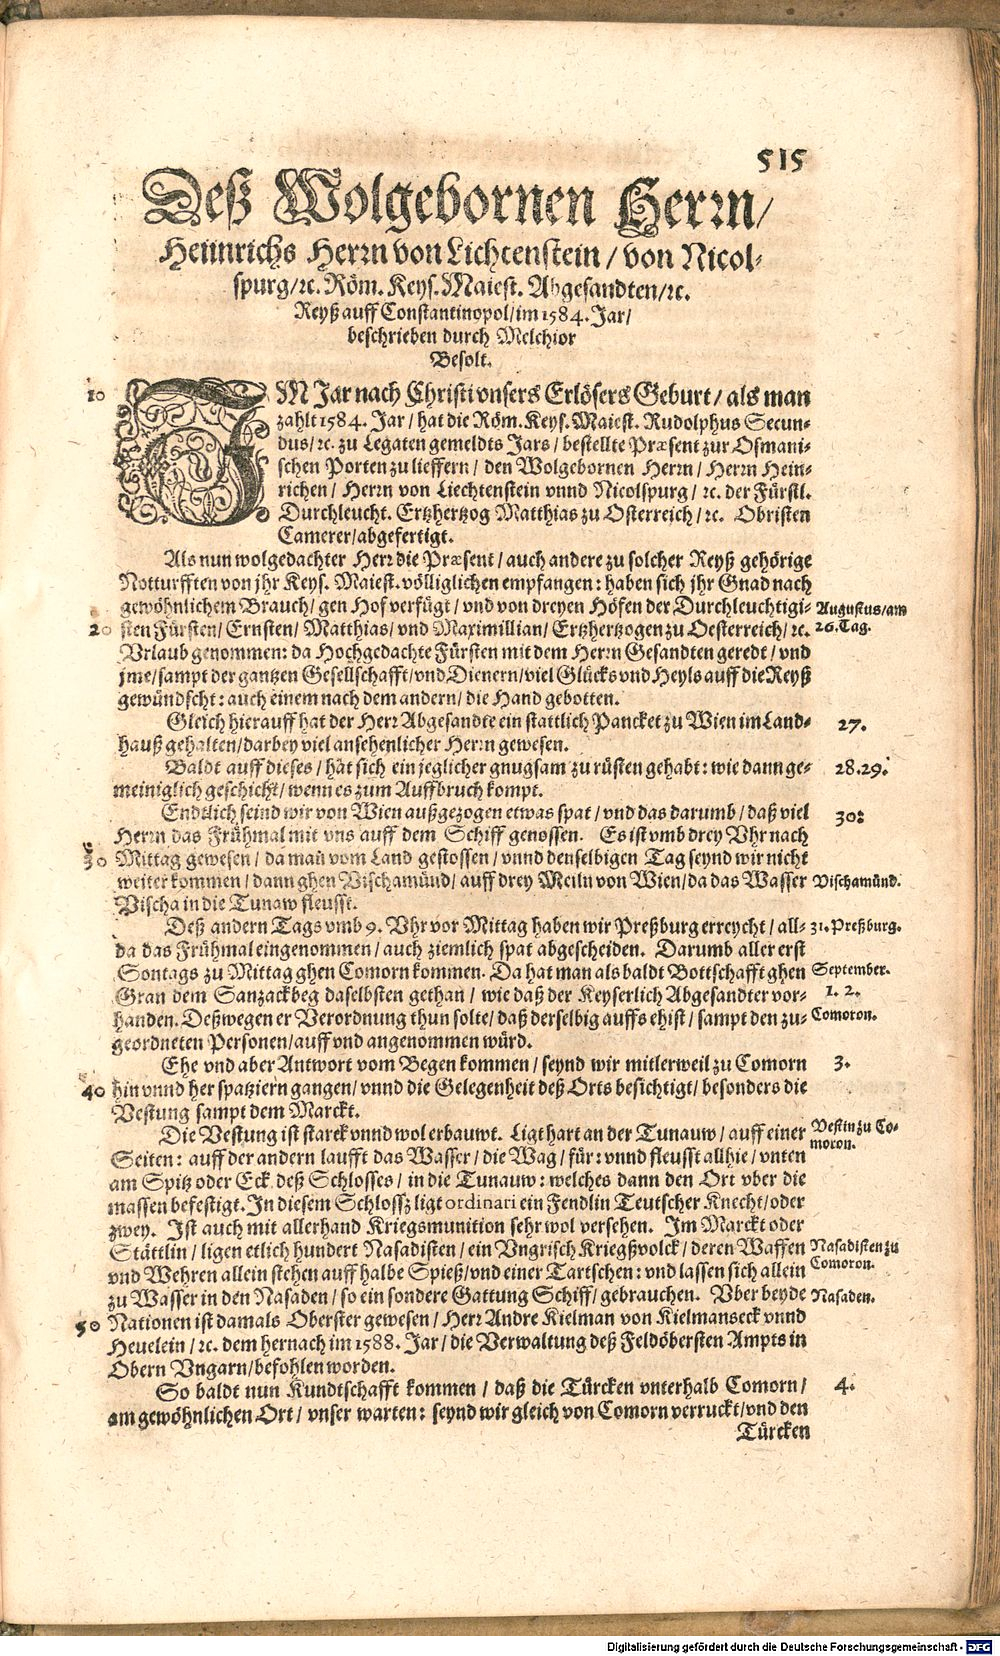 515
Deß Wolgebornen Herrn/
Heinrichs Herrn von Lichtenstein / von Nicol-
spurg/ꝛc. Röm. Keys. Maiest. Abgesandten/ꝛc.
Reyß auff Constantinopol/im 1584. Jar/
beschrieben durch Melchior
Besolt.
10 IM Jar nach Christi vnsers Erlösers Geburt / als man
zahlt 1584. Jar / hat die Röm. Keys. Maiest. Rudolphus Secun-
dus/ꝛc. zu Legaten gemeldts Jars / bestellte Præsent zur Osmani-
schen Porten zu lieffern / den Wolgebornen Herrn / Herrn Hein-
richen / Herrn von Liechtenstein vnnd Nicolspurg / ꝛc. der Fürstl.
Durchleucht. Ertzhertzog Matthias zu Osterreich / ꝛc. Obristen
Camerer/abgefertigt.
Als nun wolgedachter Herr die Præsent / auch andere zu solcher Reyß gehörige
Notturfften von jhr Keys. Maiest. völliglichen empfangen: haben sich jhr Gnad nach
gewöhnlichem Brauch/ gen Hof verfügt / vnd von dreyen Höfen der Durchleuchtigi- Augustus/am
20 sten Fürsten/ Ernsten/ Matthias/ vnd Maximillian/ Ertzhertzogen zu Oesterreich/ ꝛc. 26.Tag.
Vrlaub genommen: da Hochgedachte Fürsten mit dem Herrn Gesandten geredt / vnd
jme/sampt der gantzen Gesellschafft/vnd Dienern/viel Glücks vnd Heyls auff die Reyß
gewündscht: auch einem nach dem andern/ die Hand gebotten.
Gleich hierauff hat der Herr Abgesandte ein stattlich Pancket zu Wien im Land- 27.
hauß gehalten/darbey viel ansehenlicher Herrn gewesen.
Baldt auff dieses / hat sich ein jeglicher gnugsam zu rüsten gehabt: wie dann ge- 28.29.
meiniglich geschicht/ wenn es zum Auffbruch kompt.
Endtlich seind wir von Wien außgezogen etwas spat / vnd das darumb / daß viel 30.
Herrn das Frühmal mit vns auff dem Schiff genossen. Es ist vmb drey Vhr nach
30 Mittag gewesen / da mañ vom Land gestossen / vnnd denselbigen Tag seynd wir nicht
weiter kommen / dann ghen Vischamünd/ auff drey Meiln von Wien/da das Wasser Vischamünd.
Vischa in die Tunaw fleusst.
Deß andern Tags vmb 9. Vhr vor Mittag haben wir Preßburg erreycht / all- 31. Preßburg.
da das Frühmal eingenommen / auch ziemlich spat abgescheiden. Darumb aller erst
Sontags zu Mittag ghen Comorn kommen. Da hat man als baldt Bottschafft ghen September.
Gran dem Sanzackbeg daselbsten gethan / wie daß der Keyserlich Abgesandter vor- 1. 2.
handen. Deßwegen er Verordnung thun solte/ daß derselbig auffs ehist / sampt den zu- Comoron.
geordneten Personen/auff vnd angenommen würd.
Ehe vnd aber Antwort vom Begen kommen / seynd wir mitlerweil zu Comorn 3.
40 hin vnnd her spatziern gangen/ vnnd die Gelegenheit deß Orts besichtigt/ besonders die
Vestung sampt dem Marckt.
Die Vestung ist starck vnnd wol erbauwt. Ligt hart an der Tunauw / auff einer Vestin zu Co-
moron.
Seiten: auff der andern laufft das Wasser / die Wag / für: vnnd fleusst allhie / vnten
am Spitz oder Eck deß Schlosses / in die Tunauw: welches dann den Ort vber die
massen befestigt. In diesem Schlossz ligt ordinari ein Fendlin Teutscher Knecht/oder
zwey. Ist auch mit allerhand Kriegsmunition sehr wol versehen. Im Marckt oder
Stättlin / ligen etlich hundert Nasadisten / ein Vngrisch Kriegßvolck / deren Waffen Nasadisten zu
vnd Wehren allein stehen auff halbe Spieß/vnd einer Tartschen: vnd lassen sich allein Comoron.
zu Wasser in den Nasaden / so ein sondere Gattung Schiff/ gebrauchen. Vber beyde Nasaden.
50 Nationen ist damals Oberster gewesen / Herr Andre Kielman von Kielmanseck vnnd
Heuelein / ꝛc. dem hernach im 1588. Jar / die Verwaltung deß Feldöbersten Ampts in
Obern Vngarn/befohlen worden.
So baldt nun Kundtschafft kommen / daß die Türcken vnterhalb Comorn / 4.
am gewöhnlichen Ort / vnser warten: seynd wir gleich von Comorn verruckt/vnd den
Türcken
Digitalisierung gefördert durch die Deutsche Forschungsgemeinschaft - DFG